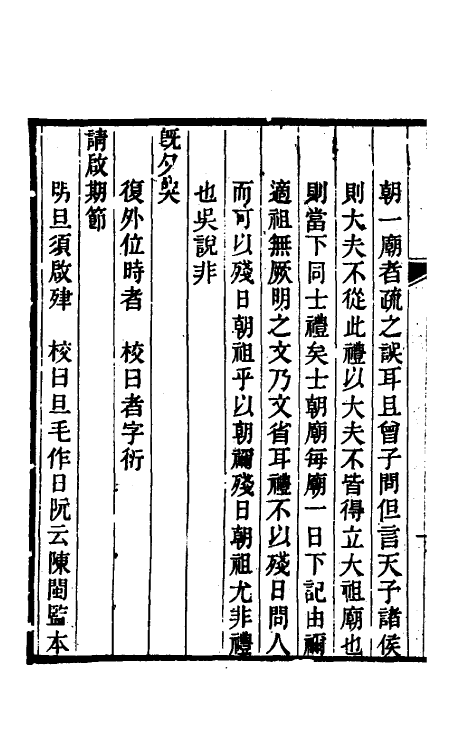 朝一廟者疏之誤耳且曾子問但言天子諸侯
則大夫不從此禮以大夫不皆得立大祖廟也
則當下同士禮矣士朝廟每廟一日下記由禰
適祖無厥明之文乃文省耳禮不以殘日問人
而可以殘日朝祖乎以朝禰殘日朝祖尤非禮
也吳說非
既夕哭
復外位時者　校曰者字衍
請啟期節
明旦須啟肂　校曰旦毛作日阮云陳閩監本